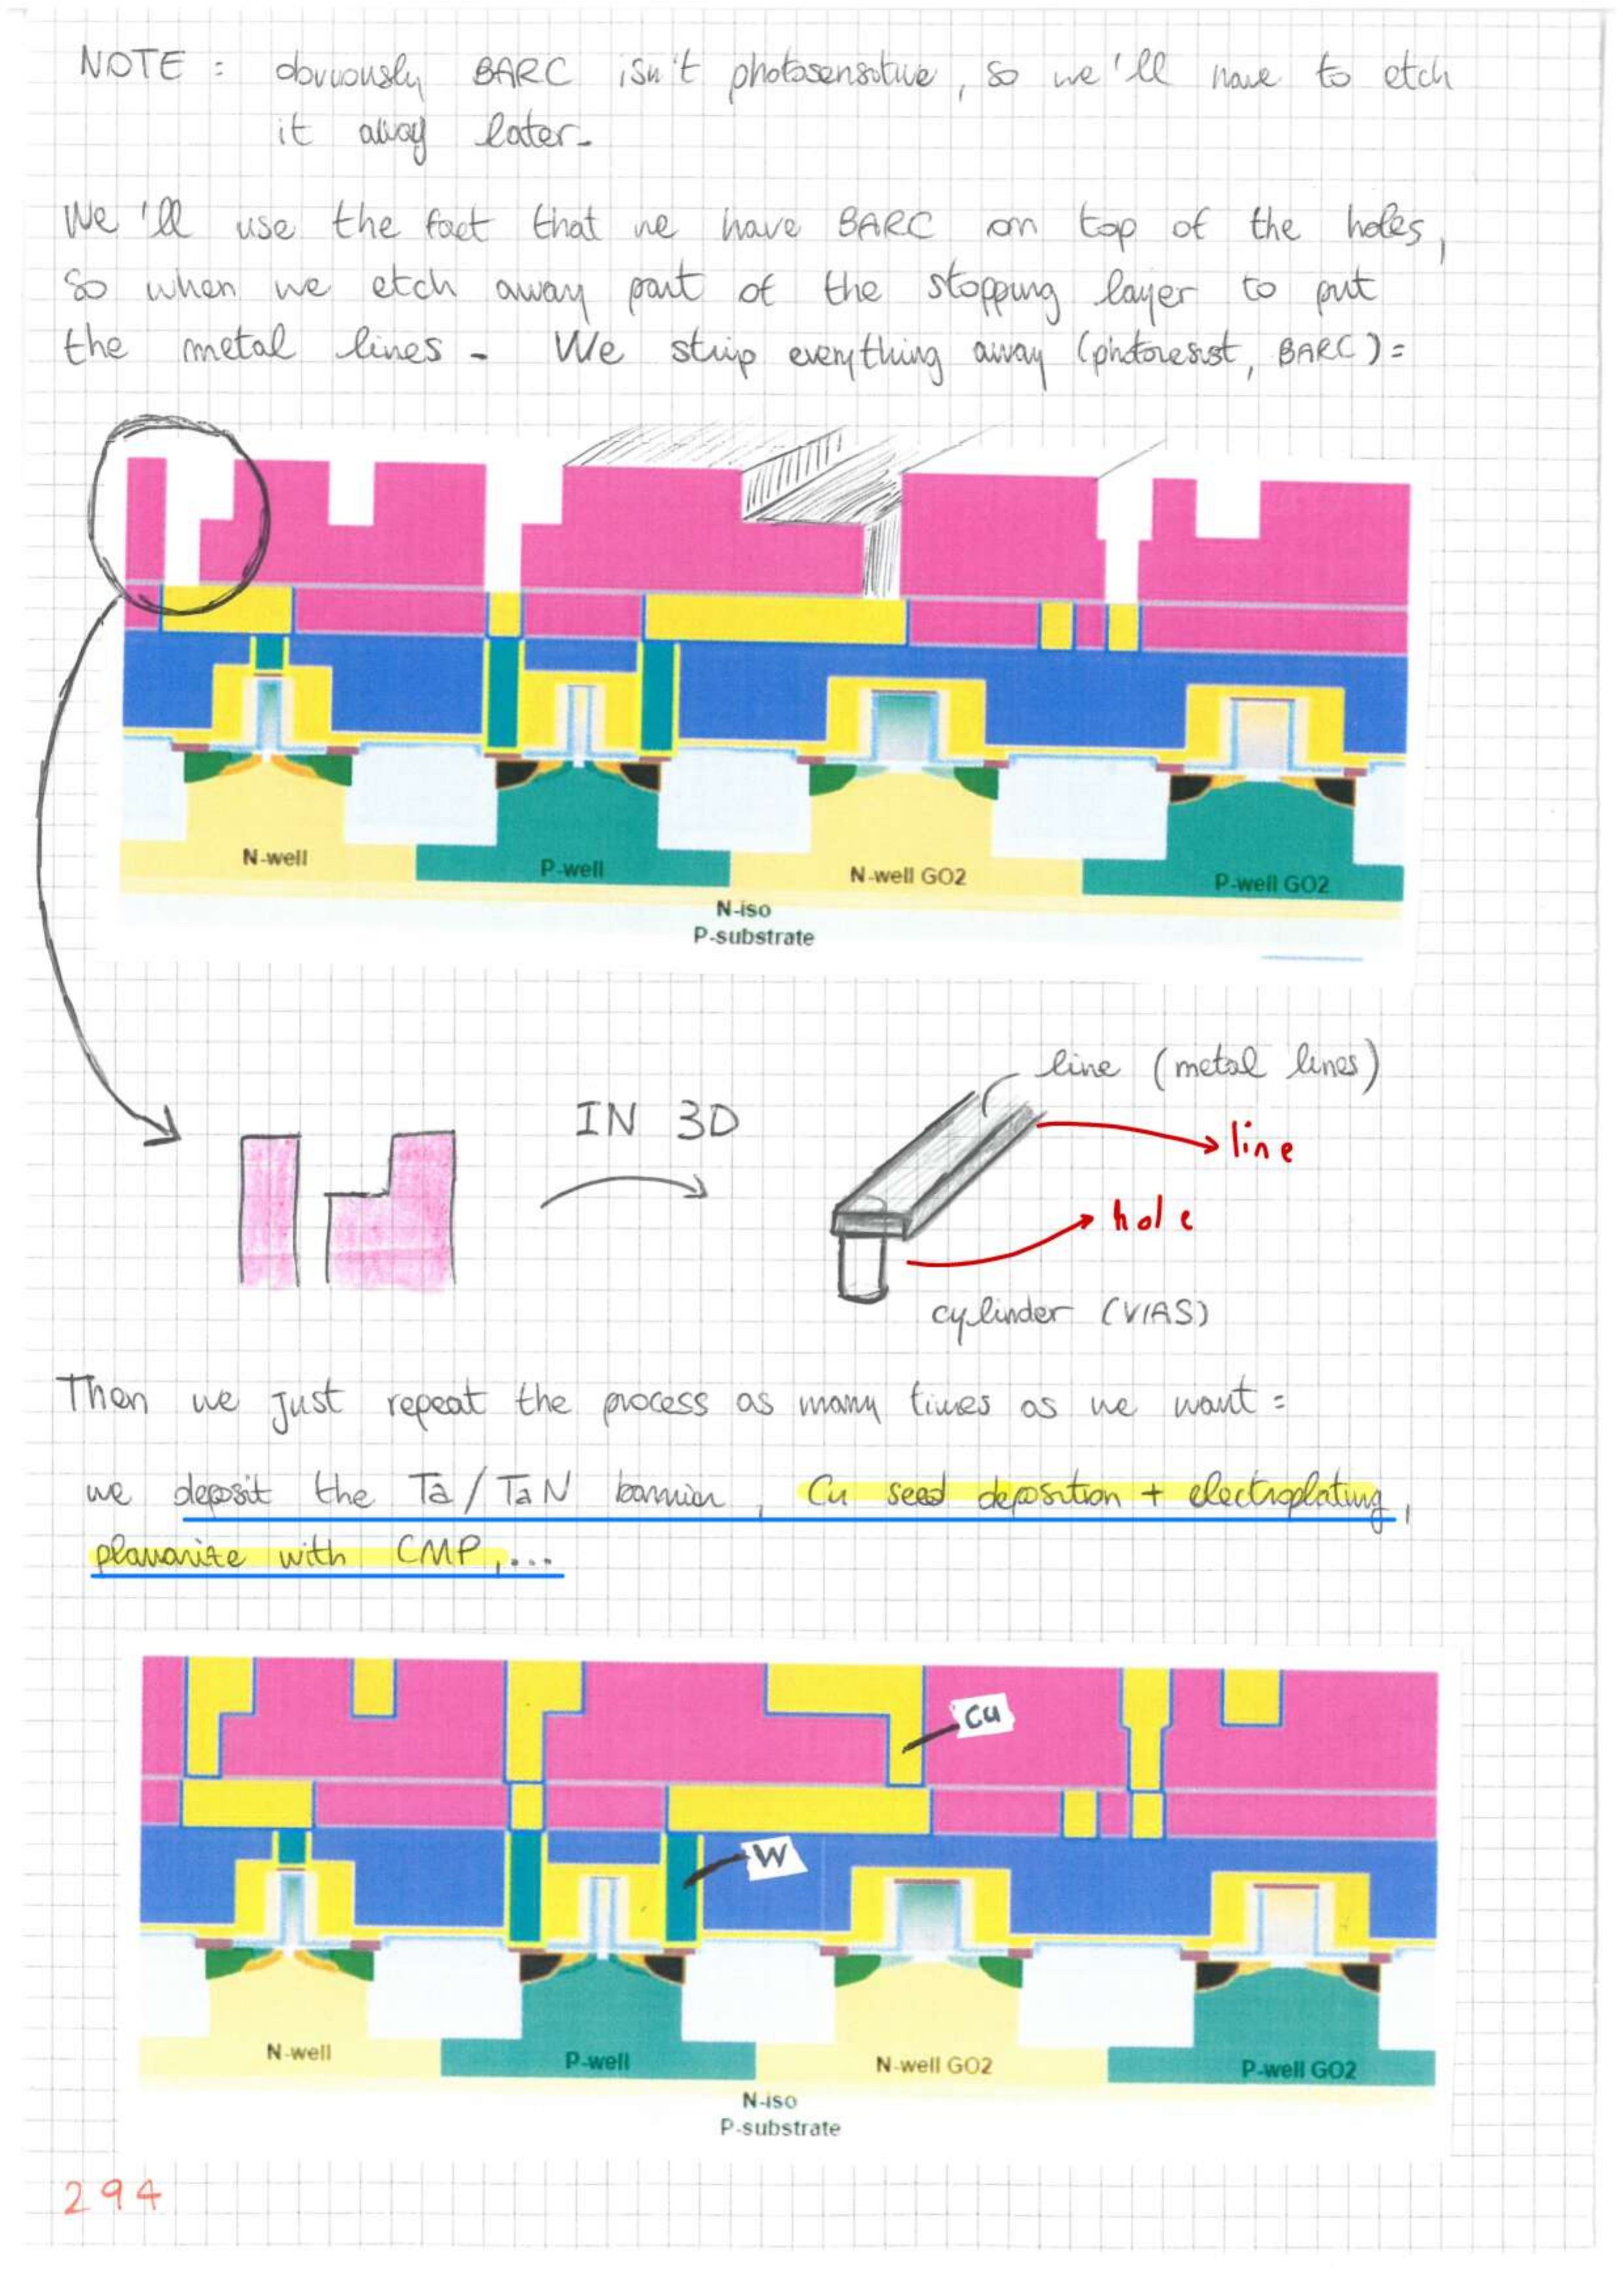 NOTE : obviously BARC isn't photosensitive, so we'll have to etch
it away later.
We'll use the fact that we have BARC on top of the holes,
so when we etch away part of the stopping layer to put
the metal lines. We strip everything away (photoresist, BARC):
N-well
P-well
N-well GO2
P-well GO2
N-iso
P-substrate
line (metal lines)
IN 3D
line
hole
cylinder (VIAS)
Then we just repeat the process as many times as we want:
we deposit the Ta/TaN barrier, Cu seed deposition + electroplating,
planarize with CMP,...
Cu
W
N-well
P-well
N-well GO2
P-well GO2
N-iso
P-substrate
294